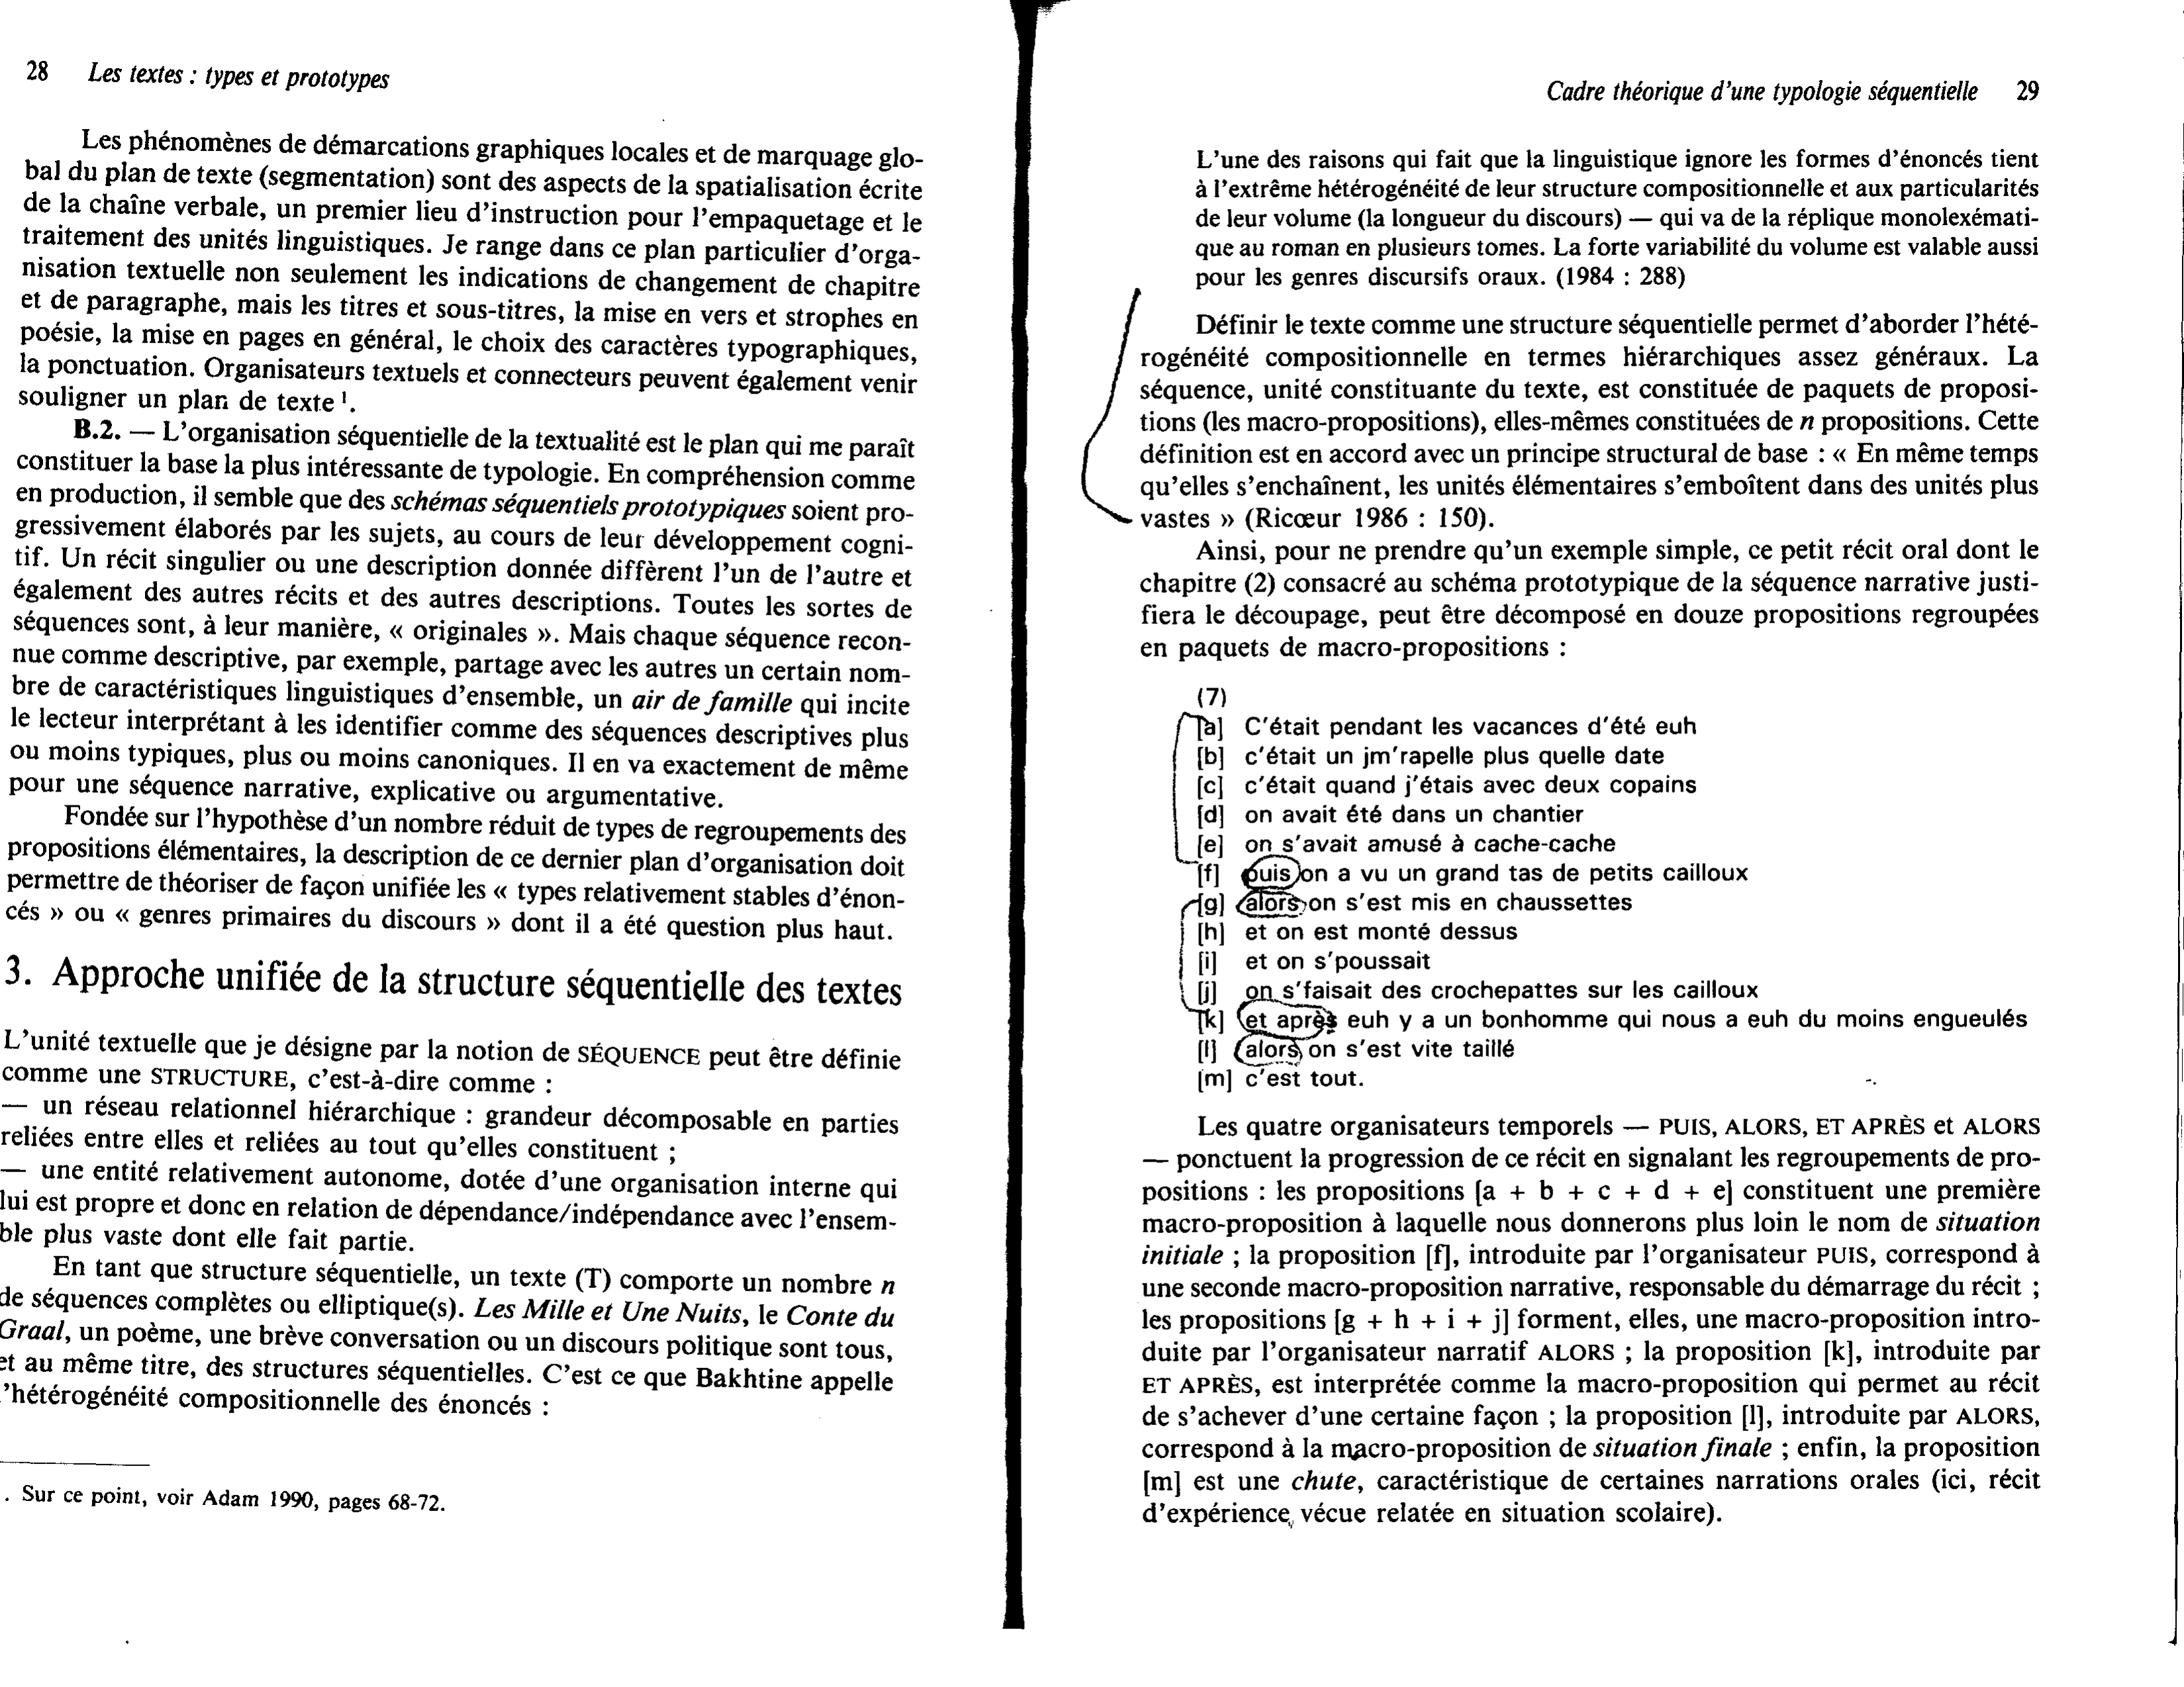 28 Les textes : types et prototypes
Les phénomènes de démarcations graphiques locales et de marquage glo-
bal du plan de texte (segmentation) sont des aspects de la spatialisation écrite
de la chaîne verbale, un premier lieu d'instruction pour l'empaquetage et le
traitement des unités linguistiques. Je range dans ce plan particulier d'orga-
nisation textuelle non seulement les indications de changement de chapitre
et de paragraphe, mais les titres et sous-titres, la mise en vers et strophes en
poésie, la mise en pages en général, le choix des caractères typographiques,
la ponctuation. Organisateurs textuels et connecteurs peuvent également venir
souligner un plan de texte ¹.
B.2. — L'organisation séquentielle de la textualité est le plan qui me paraît
constituer la base la plus intéressante de typologie. En compréhension comme
en production, il semble que des schémas séquentiels prototypiques soient pro-
gressivement élaborés par les sujets, au cours de leur développement cogni-
tif. Un récit singulier ou une description donnée diffèrent l'un de l'autre et
également des autres récits et des autres descriptions. Toutes les sortes de
séquences sont, à leur manière, « originales ». Mais chaque séquence recon-
nue comme descriptive, par exemple, partage avec les autres un certain nom-
bre de caractéristiques linguistiques d'ensemble, un air de famille qui incite
le lecteur interprétant à les identifier comme des séquences descriptives plus
ou moins typiques, plus ou moins canoniques. Il en va exactement de même
pour une séquence narrative, explicative ou argumentative.
Fondée sur l'hypothèse d'un nombre réduit de types de regroupements des
propositions élémentaires, la description de ce dernier plan d'organisation doit
permettre de théoriser de façon unifiée les « types relativement stables d'énon-
cés » ou « genres primaires du discours » dont il a été question plus haut.
3. Approche unifiée de la structure séquentielle des textes
L'unité textuelle que je désigne par la notion de SÉQUENCE peut être définie
comme une STRUCTURE, c'est-à-dire comme :
— un réseau relationnel hiérarchique : grandeur décomposable en parties
reliées entre elles et reliées au tout qu'elles constituent ;
— une entité relativement autonome, dotée d'une organisation interne qui
lui est propre et donc en relation de dépendance/indépendance avec l'ensem-
ble plus vaste dont elle fait partie.
En tant que structure séquentielle, un texte (T) comporte un nombre n
de séquences complètes ou elliptique(s). Les Mille et Une Nuits, le Conte du
Graal, un poème, une brève conversation ou un discours politique sont tous,
et au même titre, des structures séquentielles. C'est ce que Bakhtine appelle
'hétérogénéité compositionnelle des énoncés :
. Sur ce point, voir Adam 1990, pages 68-72.
Cadre théorique d'une typologie séquentielle 29
L'une des raisons qui fait que la linguistique ignore les formes d'énoncés tient
à l'extrême hétérogénéité de leur structure compositionnelle et aux particularités
de leur volume (la longueur du discours) — qui va de la réplique monolexémati-
que au roman en plusieurs tomes. La forte variabilité du volume est valable aussi
pour les genres discursifs oraux. (1984 : 288)
Définir le texte comme une structure séquentielle permet d'aborder l'hété-
rogénéité compositionnelle en termes hiérarchiques assez généraux. La
séquence, unité constituante du texte, est constituée de paquets de proposi-
tions (les macro-propositions), elles-mêmes constituées de n propositions. Cette
définition est en accord avec un principe structural de base : « En même temps
qu'elles s'enchaînent, les unités élémentaires s'emboîtent dans des unités plus
vastes » (Ricœur 1986 : 150).
Ainsi, pour ne prendre qu'un exemple simple, ce petit récit oral dont le
chapitre (2) consacré au schéma prototypique de la séquence narrative justi-
fiera le découpage, peut être décomposé en douze propositions regroupées
en paquets de macro-propositions :
(7)
[a] C'était pendant les vacances d'été euh
[b] c'était un jm'rapelle plus quelle date
[c] c'était quand j'étais avec deux copains
[d] on avait été dans un chantier
[e] on s'avait amusé à cache-cache
[f] puis on a vu un grand tas de petits cailloux
[g] alors on s'est mis en chaussettes
[h] et on est monté dessus
[i] et on s'poussait
[j] on s'faisait des crochepattes sur les cailloux
[k] et après euh y a un bonhomme qui nous a euh du moins engueulés
[l] alors on s'est vite taillé
[m] c'est tout.
Les quatre organisateurs temporels — PUIS, ALORS, ET APRÈS et ALORS
— ponctuent la progression de ce récit en signalant les regroupements de pro-
positions : les propositions [a + b + c + d + e] constituent une première
macro-proposition à laquelle nous donnerons plus loin le nom de situation
initiale ; la proposition [f], introduite par l'organisateur PUIS, correspond à
une seconde macro-proposition narrative, responsable du démarrage du récit ;
les propositions [g + h + i + j] forment, elles, une macro-proposition intro-
duite par l'organisateur narratif ALORS ; la proposition [k], introduite par
ET APRÈS, est interprétée comme la macro-proposition qui permet au récit
de s'achever d'une certaine façon ; la proposition [l], introduite par ALORS,
correspond à la macro-proposition de situation finale ; enfin, la proposition
[m] est une chute, caractéristique de certaines narrations orales (ici, récit
d'expérience vécue relatée en situation scolaire).